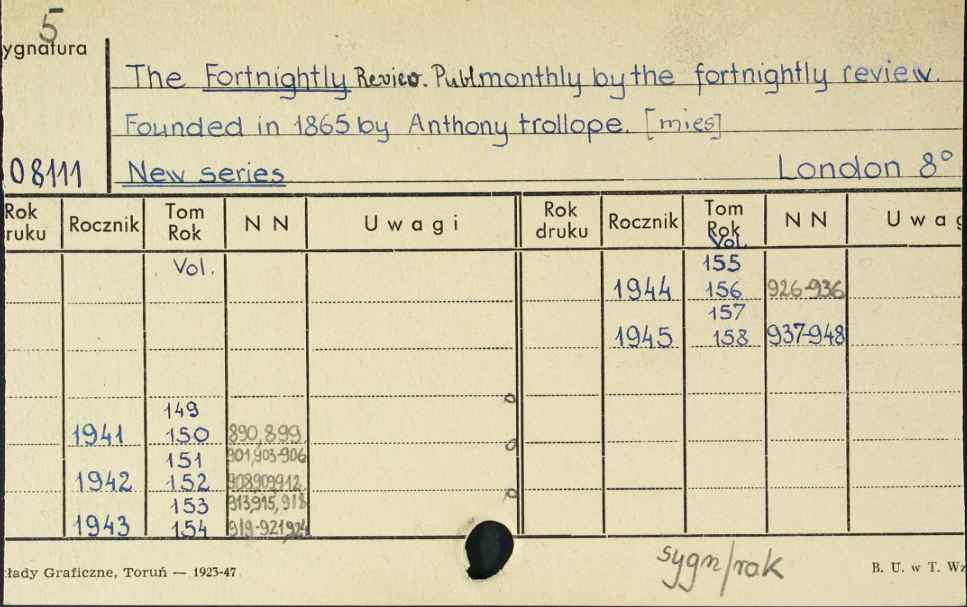 5
ygnatura
The Fortnightly Review. Publ monthly by the fortnightly review.
Founded in 1865 by Anthony trollope. [mies]
08111 New series London 8°
Rok ruku Rocznik Tom Rok N N Uwagi Rok druku Rocznik Tom Rok N N Uwag
Vol. Vol.
155
1944 156 926-936
157
1945 158 937-948
149
1941 150 890,899
151 901,903-906
1942 152 908,909,912
153 913,915,918
1943 154 919-921,924
kłady Graficzne, Toruń — 1923-47
sygn/rak
B. U. w T. Wz